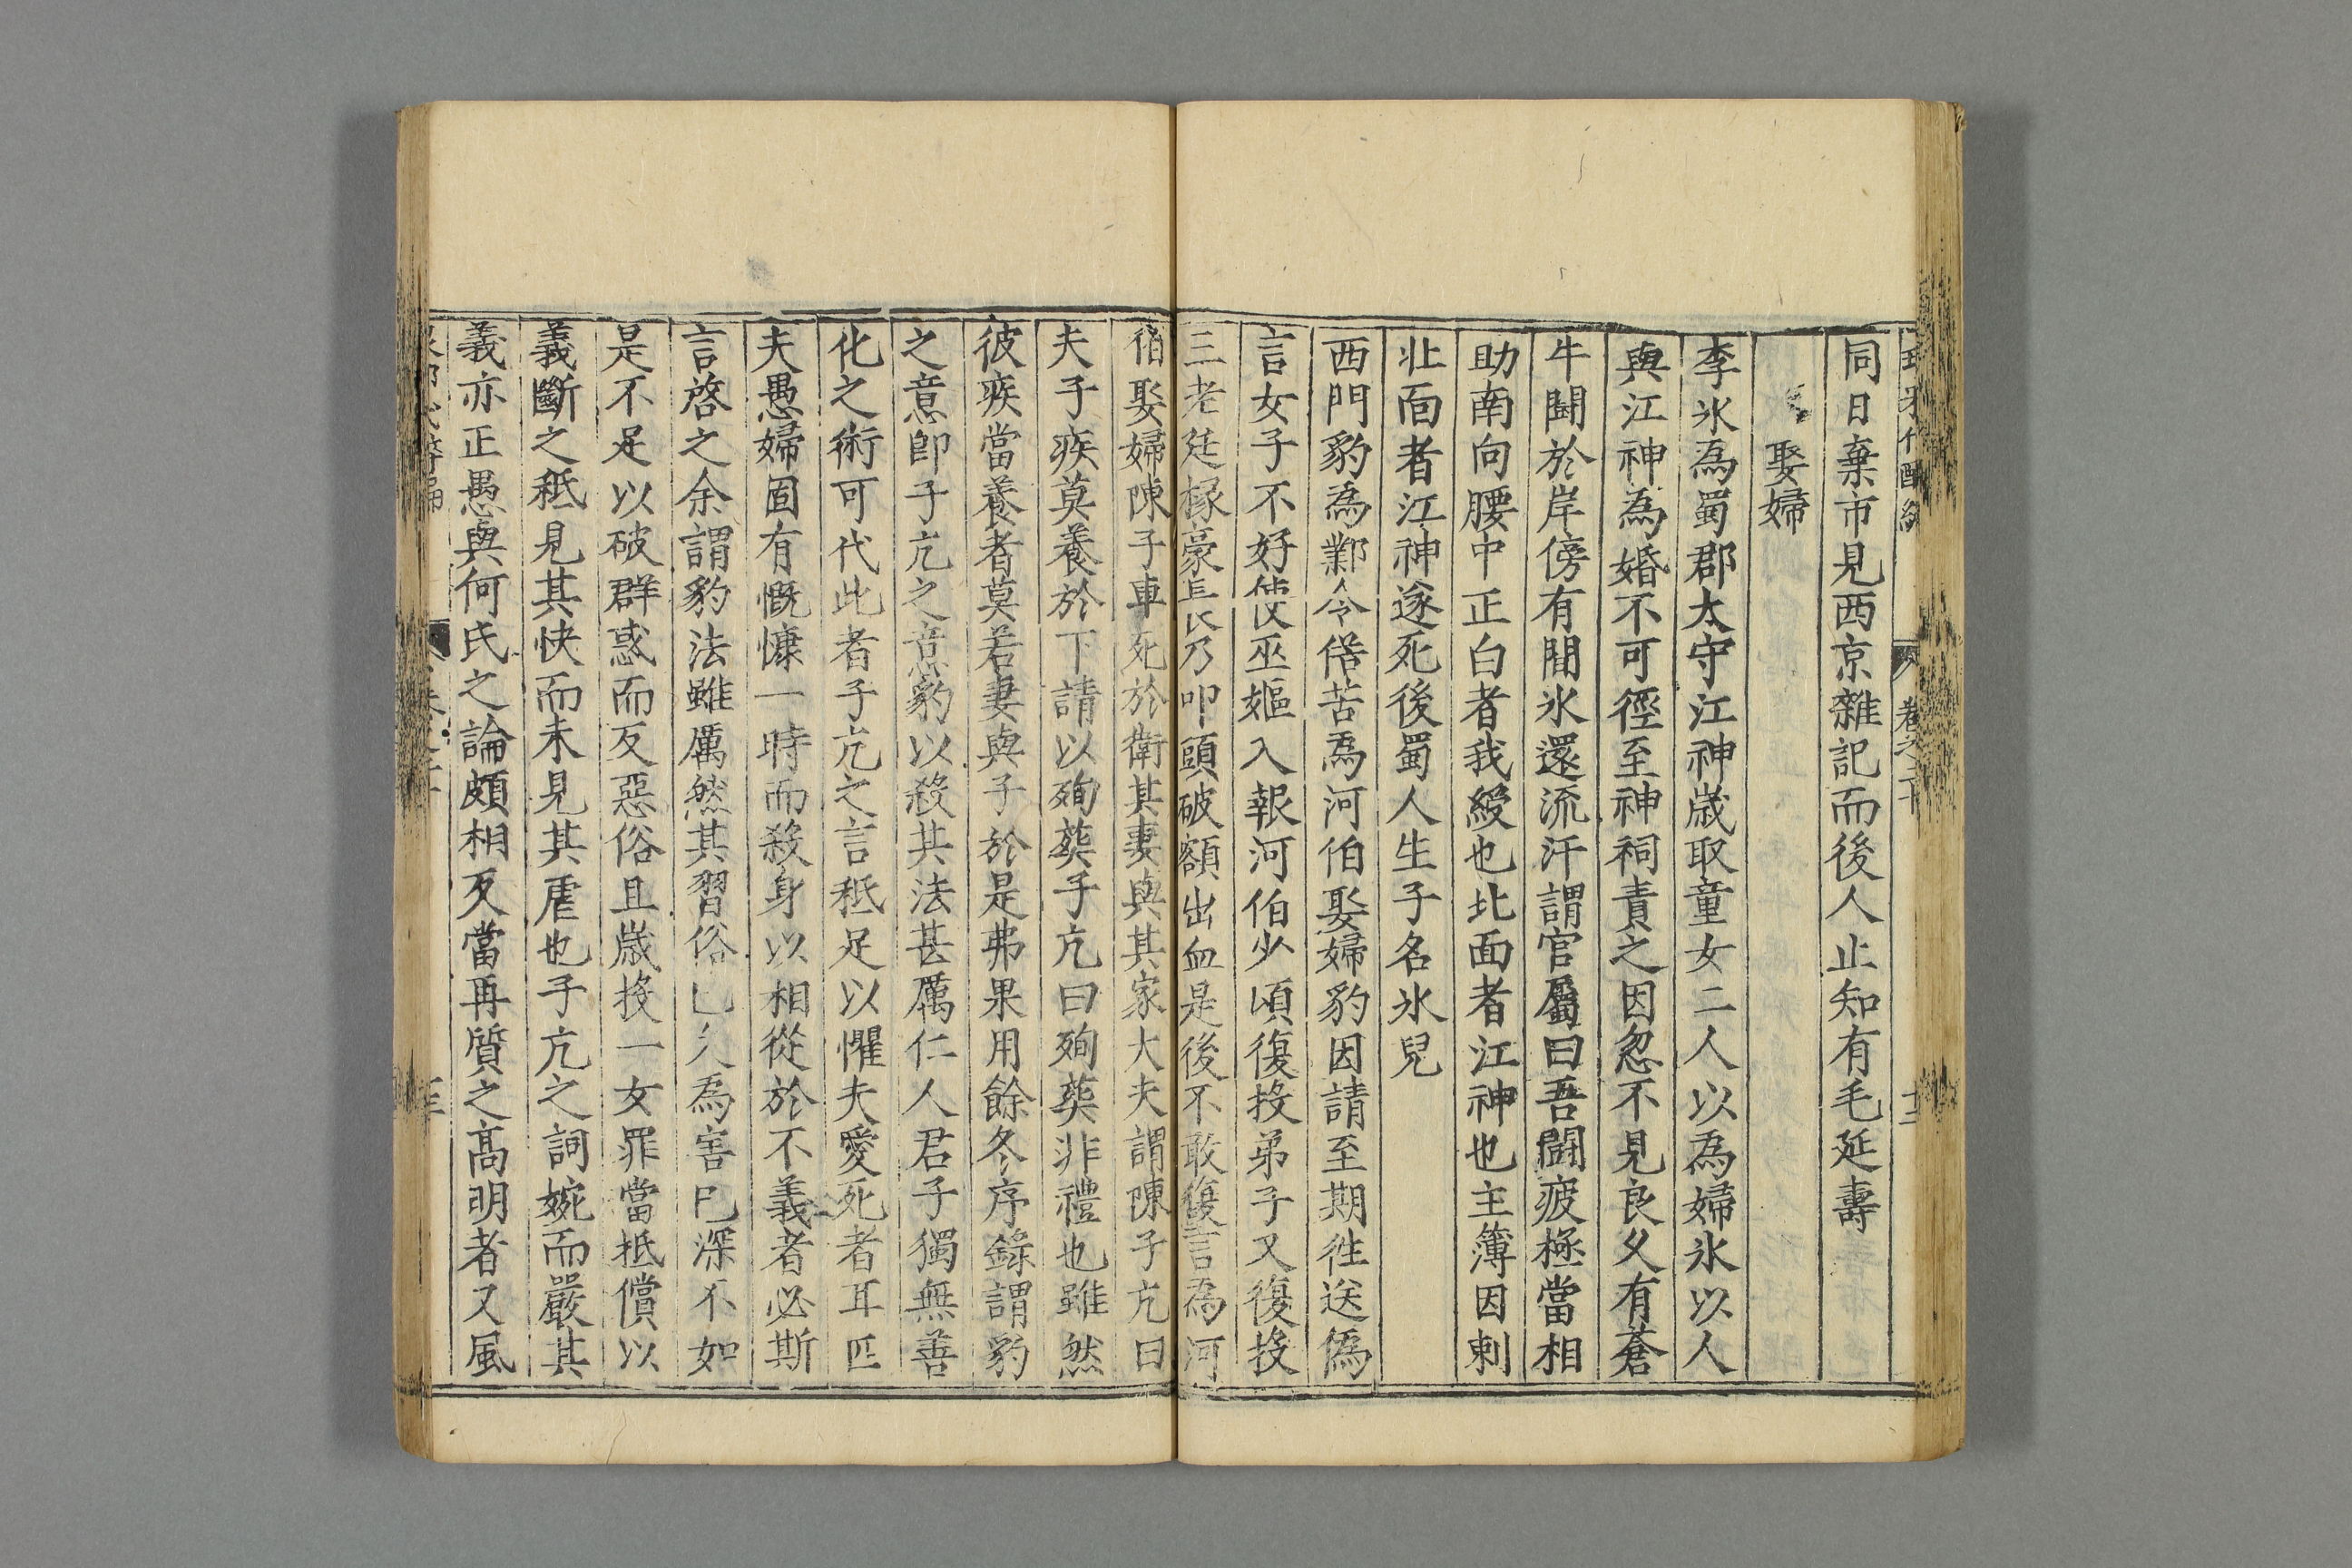 同日棄市見西京雜記而後人止知有毛延壽
娶婦
李氷爲蜀郡太守江神歲取童女二人以爲婦氷以人
與江神爲婚不可徑至神祠責之因忽不見良久有蒼
牛鬪於岸傍有間氷還流汗謂官屬曰吾鬪疲極當相
助南向腰中正白者我綬也北面者江神也主簿因刺
北面者江神遂死後蜀人生子名氷兒
西門豹爲鄴令俗苦爲河伯娶婦豹因請至期徃送僞
言女子不好使巫嫗入報河伯少頃復投弟子又復投
三老廷掾豪長民乃叩頭破額出血是後不敢復言爲河
伯娶婦陳子車死於衛其妻與其家大夫謂陳子亢曰
夫子疾莫養於下請以殉葬子亢曰殉葬非禮也雖然
彼疾當養者莫若妻與子於是弗果用餘冬序錄謂豹
之意卽子亢之意豹以殺其法甚厲仁人君子獨無善
化之術可代此者子亢之言秪足以懼夫愛死者耳匹
夫愚婦固有慨慷一時而殺身以相從於不義者必斯
言啓之余謂豹法雖厲然其習俗已久爲害已深不如
是不足以破群惑而反惡俗且歲投一女罪當抵償以
義斷之秪見其快而未見其虐也子亢之詞婉而嚴其
義亦正愚與何氏之論頗相反當再質之高明者又風